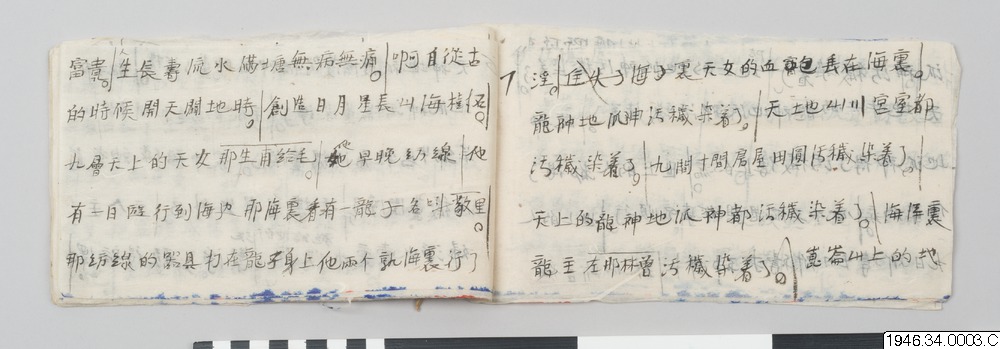 富貴。生長壽流水滿塘無病無痛。啊自從古
的時候開天闢地時。創造日月星長山海
九層天上的天女那生甫。她早晚紡線。他
有一日遊行到海边那海裏看有一龍子名叫敖里
那紡線的器具打在龍子身上他兩个海裏行了
淫。失了海子裏天女的血包丟在海裏。
龍神地爪神污穢染着了。天土地山川宮室都
污穢染着了。九間十間居屋田園污穢染着了。
天上的龍神地爪神都污穢染着了。海洋裏
龍主在那林曾污穢染着了。崑崙山上的地
1946.34.0003.C